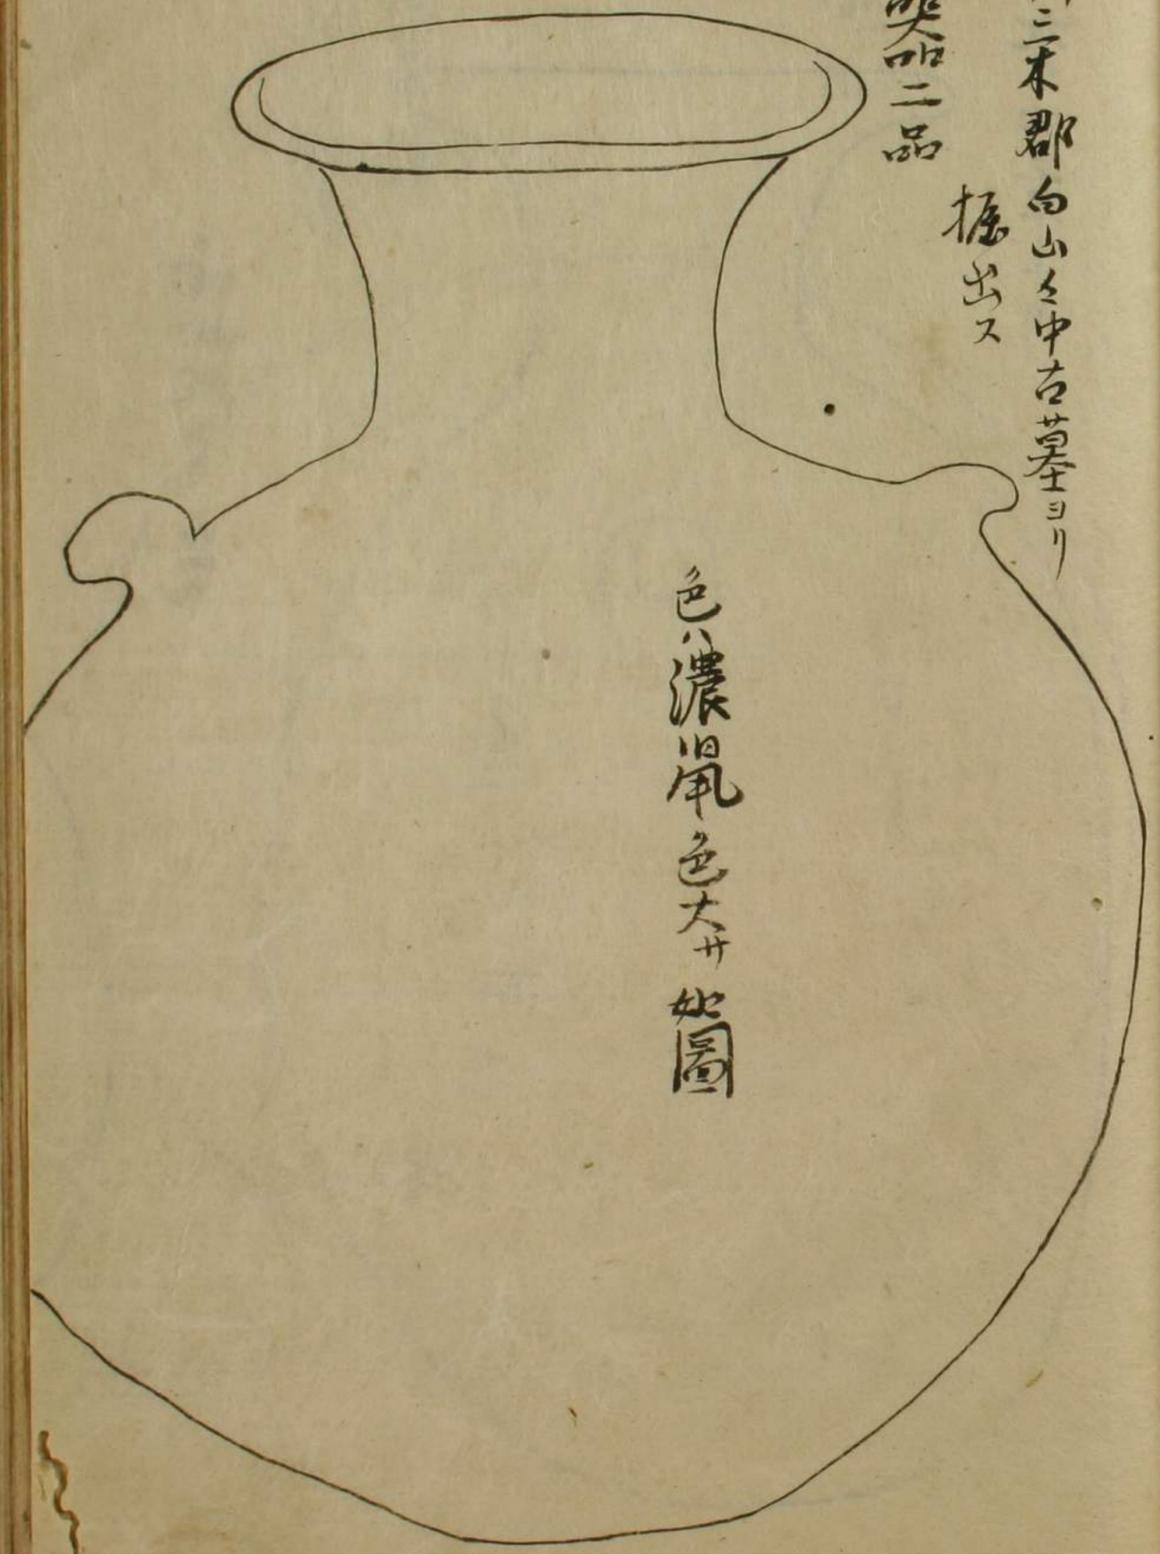 三木郡白山々中古墓ヨリ
掘出ス
器二品
色ハ濃鼠色大サ如圖